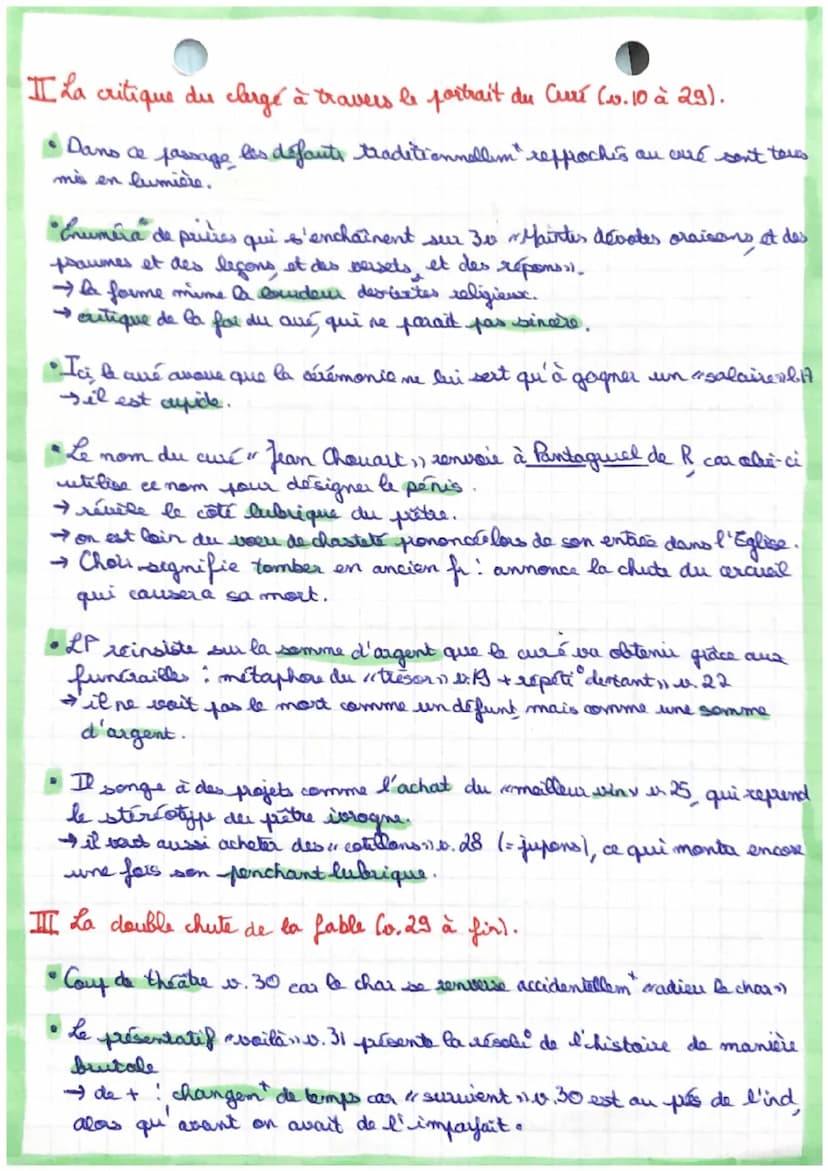 II La critique du clergé à travers le portrait du Curé (v.10 à 29).
• Dans ce passage, les défauts traditionnellem^t reprochés au curé sont tous
mis en lumière.
• Énuméra° de prières qui s'enchaînent sur 3v « Maintes dévotes oraisons, et des
psaumes et des leçons, et des versets, et des répons ».
→ la forme mime la lourdeur des textes religieux.
→ critique de la foi du curé, qui ne parait pas sincère.
• Ici, le curé avoue que la cérémonie ne lui sert qu'à gagner un « salaire »
→ il est cupide.
• Le nom du curé « Jean Chouart » renvoie à Pantagruel de R, car celui-ci
utilise ce nom pour désigner le pénis.
→ révèle le côté lubrique du prêtre.
→ on est loin du voeu de chasteté prononcé lors de son entrée dans l'Eglise.
→ Choir signifie tomber en ancien fr : annonce la chute du cercueil
qui causera sa mort.
• LF réinsiste sur la somme d'argent que le curé va obtenir grâce aux
funérailles : métaphore du « trésor » v.19 + répéti° de « tant » v.22
→ il ne voit pas le mort comme un défunt, mais comme une somme
d'argent.
• Il songe à des projets comme l'achat du « meilleur vin » v.25, qui reprend
le stéréotype du prêtre ivrogne.
→ il veut aussi acheter des « cotillons » v.28 (= jupons), ce qui montre encore
une fois son penchant lubrique.
III La double chute de la fable (v.29 à fin).
• Coup de théâtre v.30 car le char se renverse accidentellem^t « adieu le char »
• Le présentatif « voilà » v.31 présente la résolu° de l'histoire de manière
brutale
→ de + : changem^t de temps car « survient » v.30 est au prés de l'ind,
alors qu'avant on avait de l'imparfait.